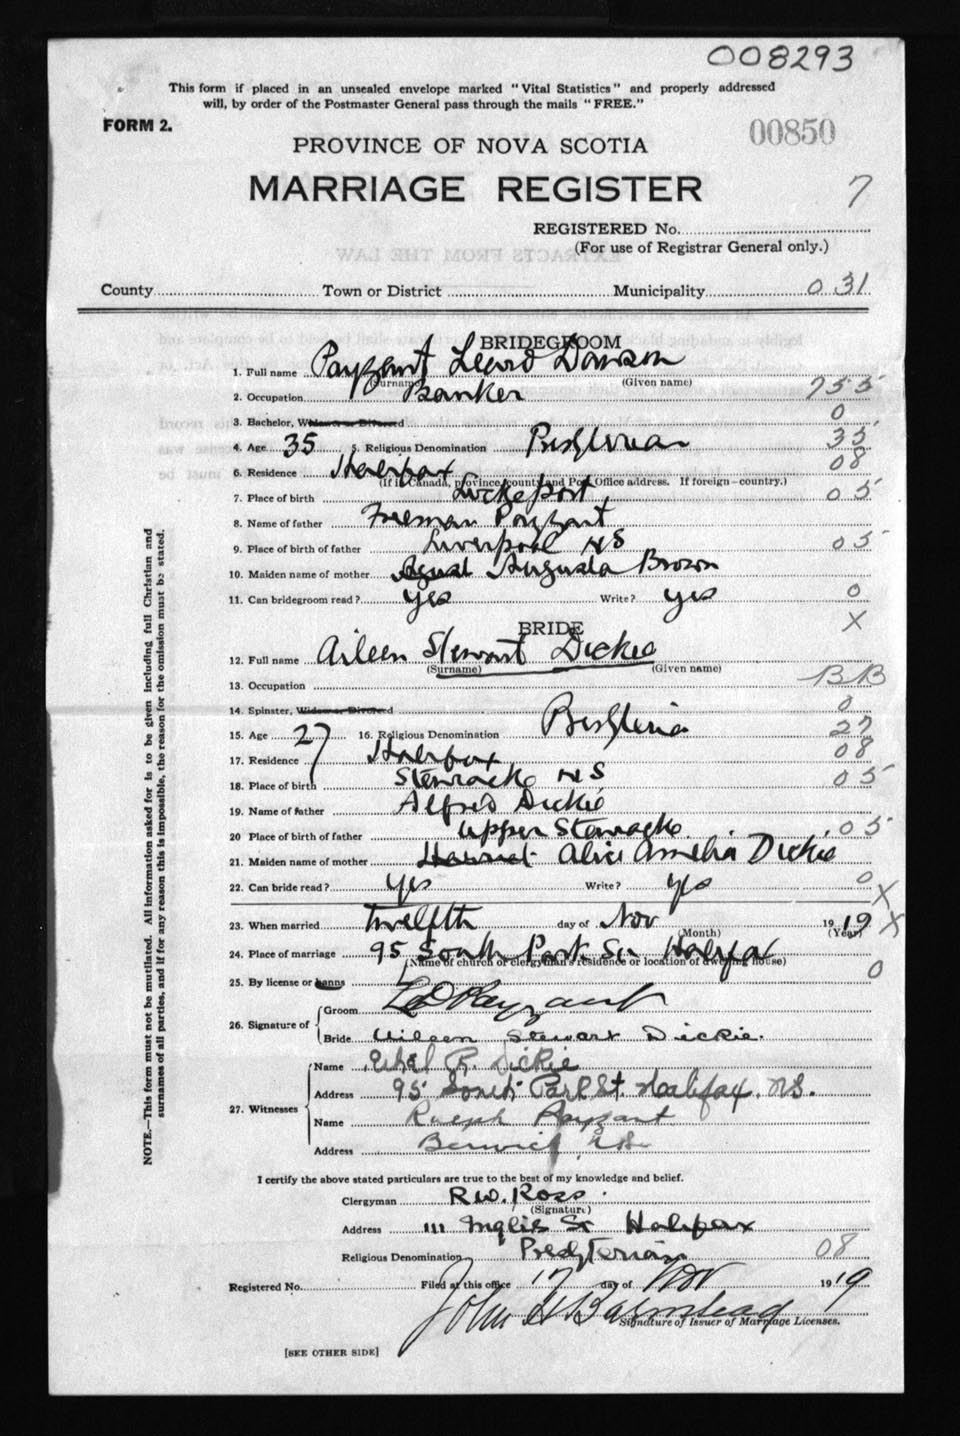 008293
This form if placed in an unsealed envelope marked "Vital Statistics" and properly addressed
will, by order of the Postmaster General pass through the mails "FREE."
FORM 2.
00850
PROVINCE OF NOVA SCOTIA
MARRIAGE REGISTER
7
REGISTERED No.
(For use of Registrar General only.)
County Town or District Municipality 031
BRIDEGROOM
1. Full name Payzant Dawson
(Surname) (Given name)
2. Occupation Banker 755
3. Bachelor, Widower or Divorced 0
4. Age 35 5. Religious Denomination Presbyterian 35
6. Residence Halifax 08
(If in Canada, province, county and Post Office address. If foreign—country.)
7. Place of birth Lockeport 05
8. Name of father Freeman Payzant
9. Place of birth of father Liverpool NS 05
10. Maiden name of mother Augusta Brown
11. Can bridegroom read? yes Write? yes 0
BRIDE X
12. Full name Aileen Stewart Dickie
(Surname) (Given name)
13. Occupation BB
14. Spinster, Widow or Divorced 0
15. Age 27 16. Religious Denomination 27
17. Residence Halifax 08
18. Place of birth Stewiacke NS 05
19. Name of father Alfred Dickie
20 Place of birth of father Upper Stewiacke 05
21. Maiden name of mother Harriet Alice Amelia Dickie
22. Can bride read? yes Write? yes 0
X
23. When married twelfth day of Nov 1919 X
(Month) (Year)
24. Place of marriage 95 South Park St Halifax
(Name of church or clergyman's residence or location of dwelling house)
25. By license or banns L 0
26. Signature of Groom L D Payzant
Bride Aileen Stewart Dickie.
27. Witnesses Name Ethel R. Dickie
Address 95 South Park St. Halifax, N.S.
Name Ralph Payzant
Address Berwick, N.S.
I certify the above stated particulars are true to the best of my knowledge and belief.
Clergyman R.W. Ross.
(Signature)
Address 111 Inglis St Halifax
Religious Denomination Presbyterian 08
Registered No. Filed at this office 17 day of Nov 1919
John H Barnstead
Signature of Issuer of Marriage Licenses.
[SEE OTHER SIDE]
NOTE.—This form must not be mutilated. All information asked for is to be given including full Christian and
surnames of all parties, and if for any reason this is impossible, the reason for the omission must be stated.